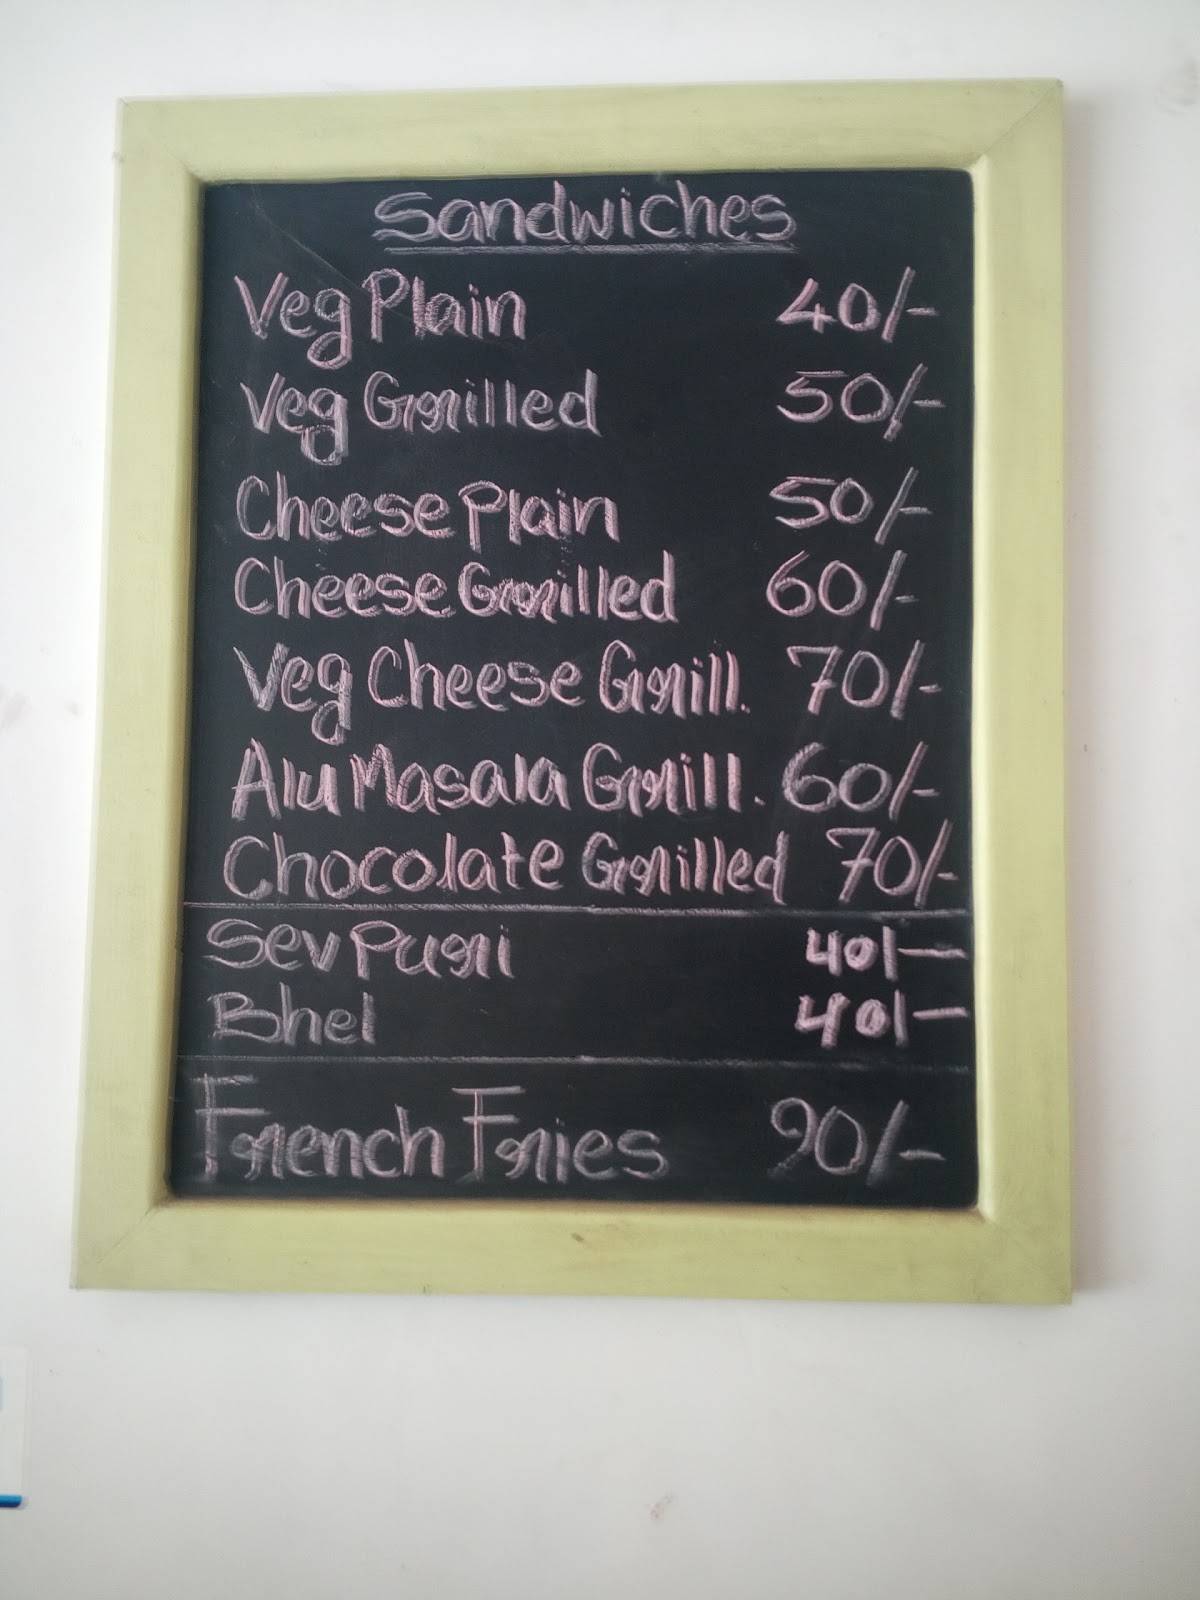 Sandwiches
Veg Plain 40/-
Veg Grilled 50/-
Cheese Plain 50/-
Cheese Grilled 60/-
Veg Cheese Grill. 70/-
Alu Masala Grill. 60/-
Chocolate Grilled 70/-
Sev Puri 40/-
Bhel 40/-
French Fries 90/-